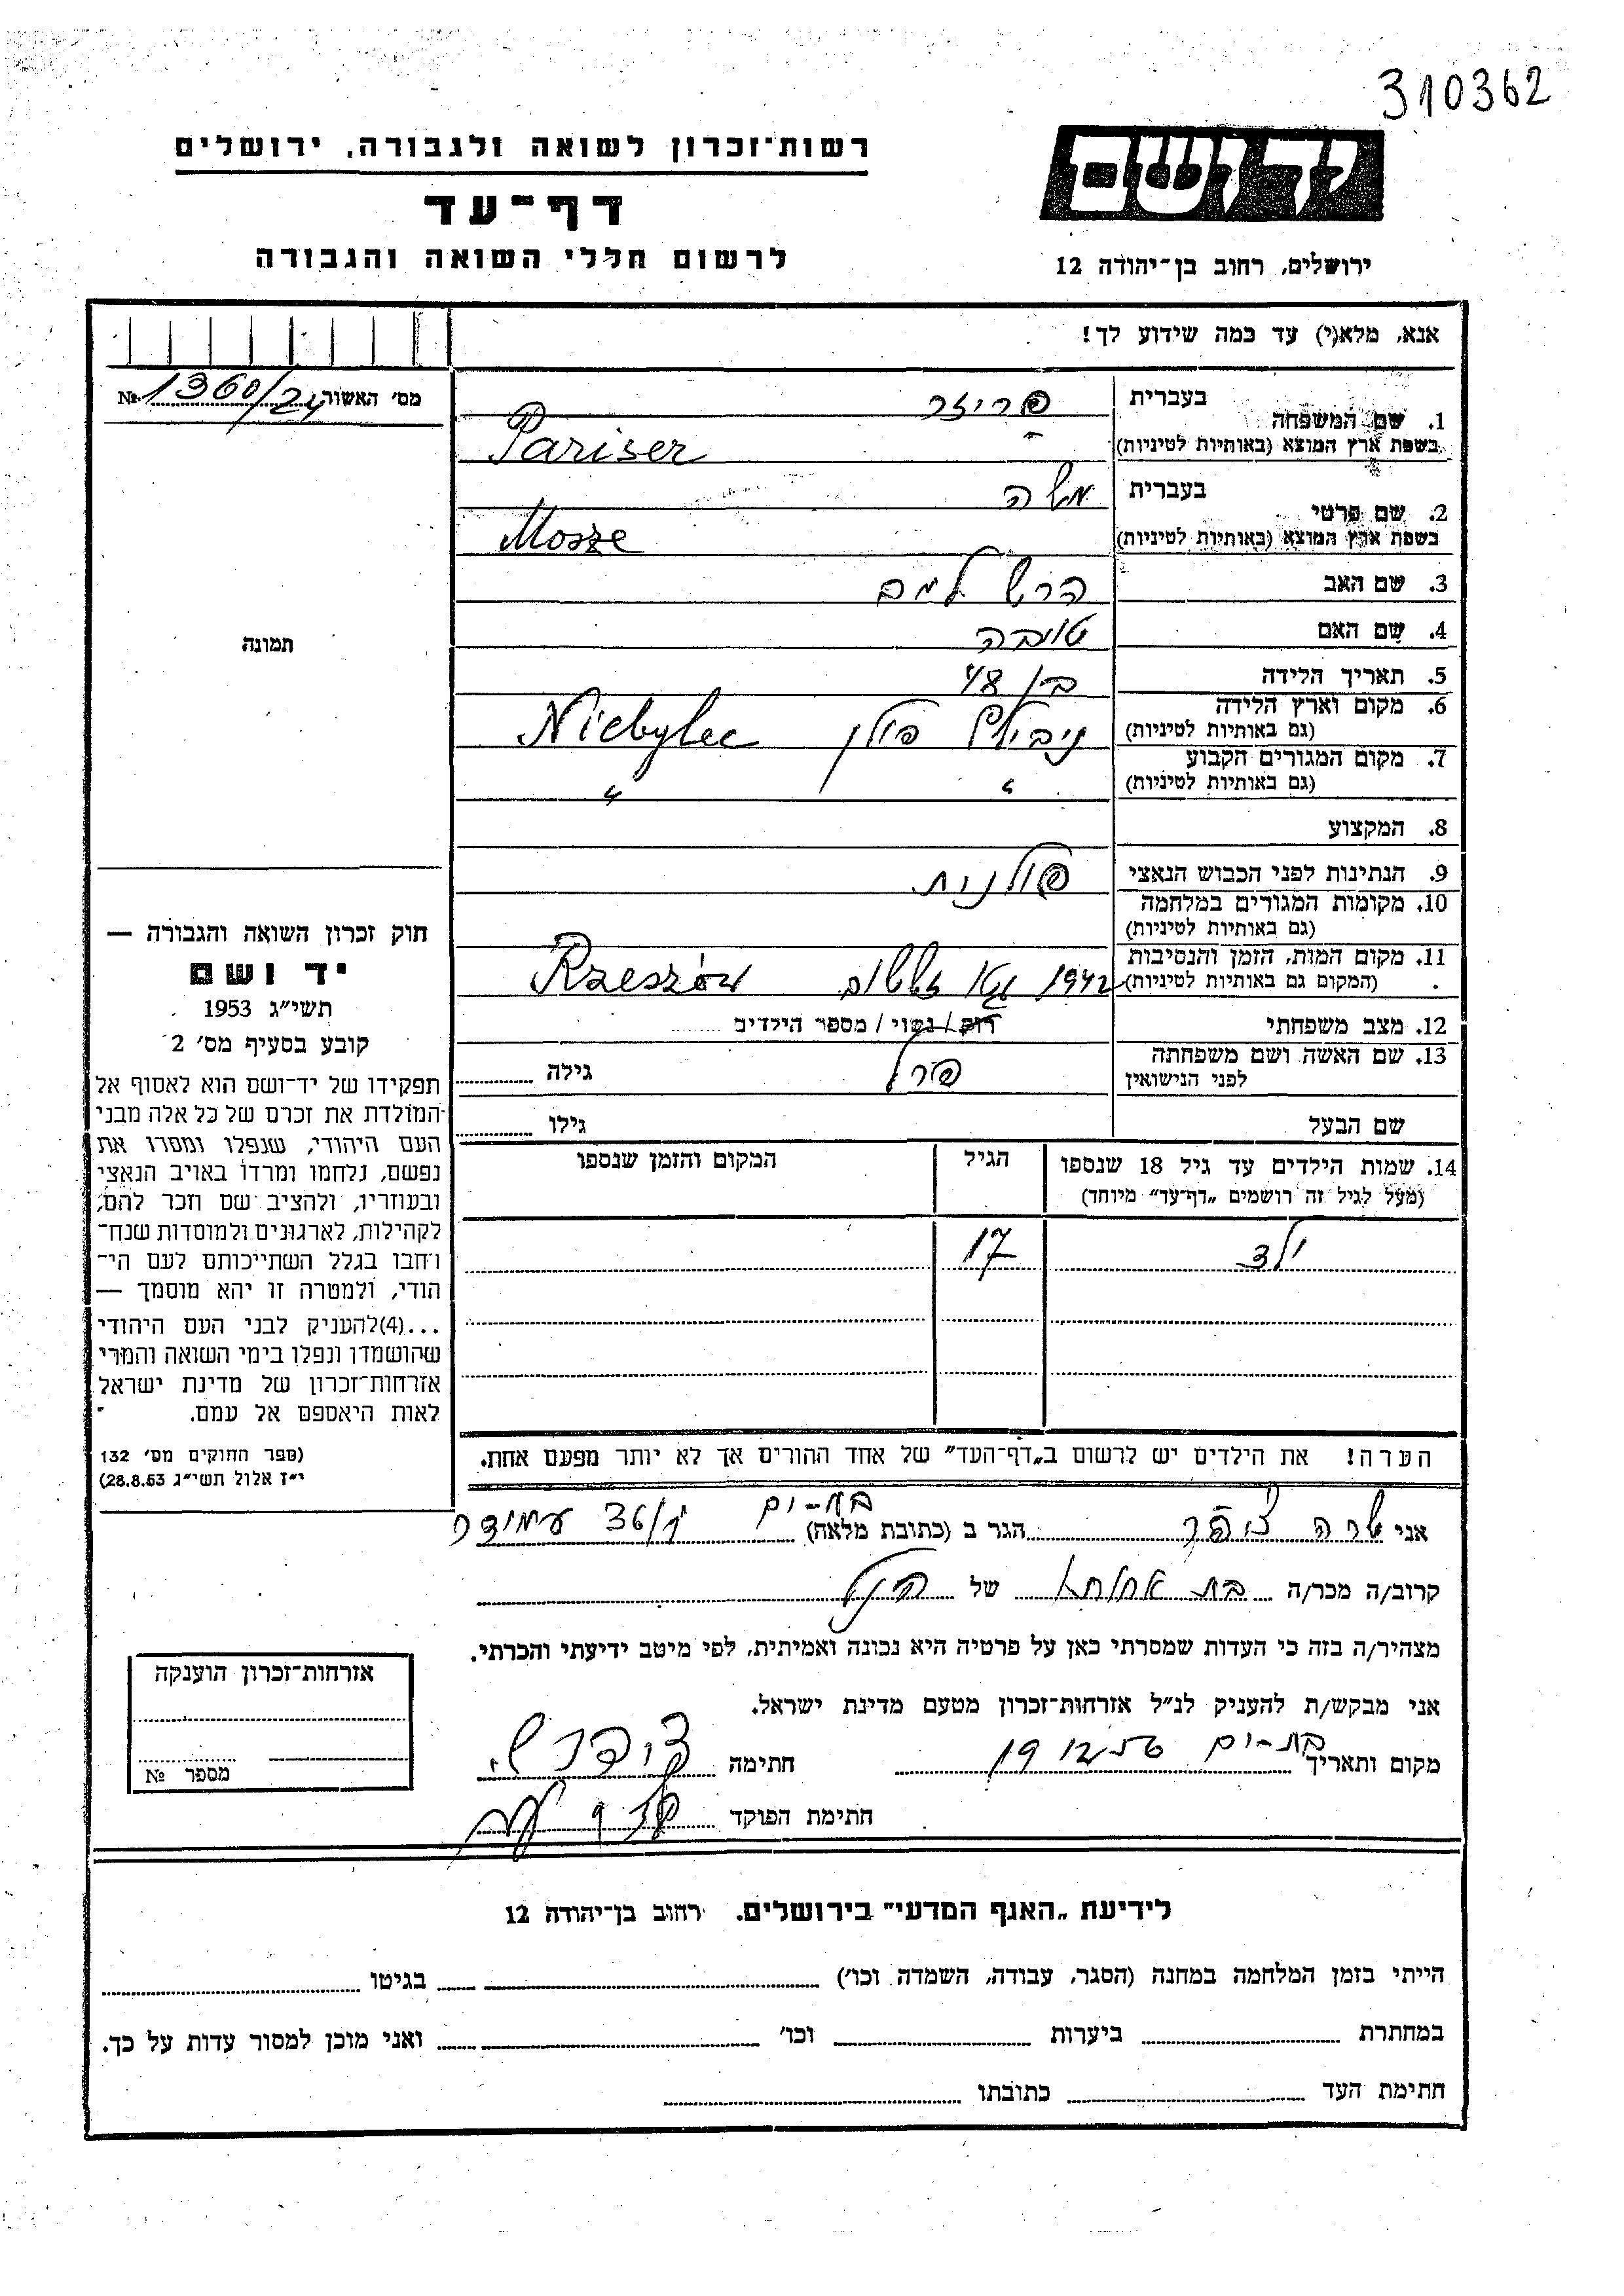 310362
יד ושם
רשות־זכרון לשואה ולגבורה, ירושלים
דף־עד
לרשום חללי השואה והגבורה
ירושלים, רחוב בן־יהודה 12
אנא, מלא(י) עד כמה שידוע לך!
מס׳ האשור 1360/24 №
1. שם המשפחה בעברית פריזר
בשפת ארץ המוצא (באותיות לטיניות) Pariser
2. שם פרטי בעברית משה
בשפת ארץ המוצא (באותיות לטיניות) Mosze
3. שם האב הרש
4. שם האם טובה
5. תאריך הלידה בן 48
6. מקום וארץ הלידה (גם באותיות לטיניות) ניבילץ פולין Niebylec
7. מקום המגורים הקבוע (גם באותיות לטיניות) " "
8. המקצוע
9. הנתינות לפני הכבוש הנאצי פולנית
10. מקומות המגורים במלחמה (גם באותיות לטיניות)
11. מקום המות, הזמן והנסיבות (המקום גם באותיות לטיניות) 1942 Rzeszów
12. מצב משפחתי רוק / נשוי / מספר הילדים
13. שם האשה ושם משפחתה לפני הנישואין פרל גילה
שם הבעל גילו
14. שמות הילדים עד גיל 18 שנספו (מעל לגיל זה רושמים „דף־עד״ מיוחד) הגיל המקום והזמן שנספו
ילד 17
הערה! את הילדים יש לרשום ב„דף־העד״ של אחד ההורים אך לא יותר מפעם אחת.
תמונה
חוק זכרון השואה והגבורה —
יד ושם
תשי״ג 1953
קובע בסעיף מס׳ 2
תפקידו של יד־ושם הוא לאסוף אל
המולדת את זכרם של כל אלה מבני
העם היהודי, שנפלו ומסרו את
נפשם, נלחמו ומרדו באויב הנאצי
ובעוזריו, ולהציב שם וזכר להם,
לקהילות, לארגונים ולמוסדות שנח־
רחבו בגלל השתייכותם לעם הי־
הודי, ולמטרה זו יהא מוסמך —
...(4)להעניק לבני העם היהודי
שהושמדו ונפלו בימי השואה והמרי
אזרחות־זכרון של מדינת ישראל
לאות היאספם אל עמם.
(ספר החוקים מס׳ 132
י״ז אלול תשי״ג 28.8.53)
בת-ים
אני שרה ציפר הגר ב (כתובת מלאה) 36
קרוב/ה מכר/ה בת של הנ״ל
מצהיר/ה בזה כי העדות שמסרתי כאן על פרטיה היא נכונה ואמיתית, לפי מיטב ידיעתי והכרתי.
אני מבקש/ת להעניק לנ״ל אזרחות־זכרון מטעם מדינת ישראל.
מקום ותאריך בת-ים חתימה
חתימת הפוקד
אזרחות־זכרון הוענקה
מספר №
לידיעת „האגף המדעי״ בירושלים. רחוב בן־יהודה 12
הייתי בזמן המלחמה במחנה (הסגר, עבודה, השמדה וכו׳) בגיטו
במחתרת ביערות וכו׳ ואני מוכן למסור עדות על כך.
חתימת העד כתובתו